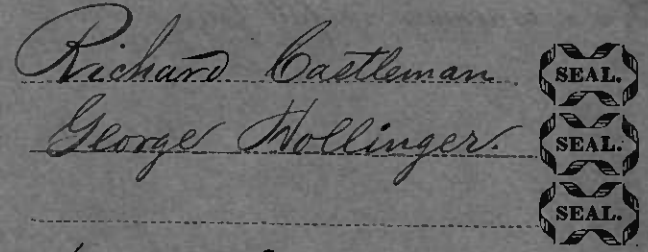 Richard Castleman SEAL.
George Hollinger. SEAL.
SEAL.